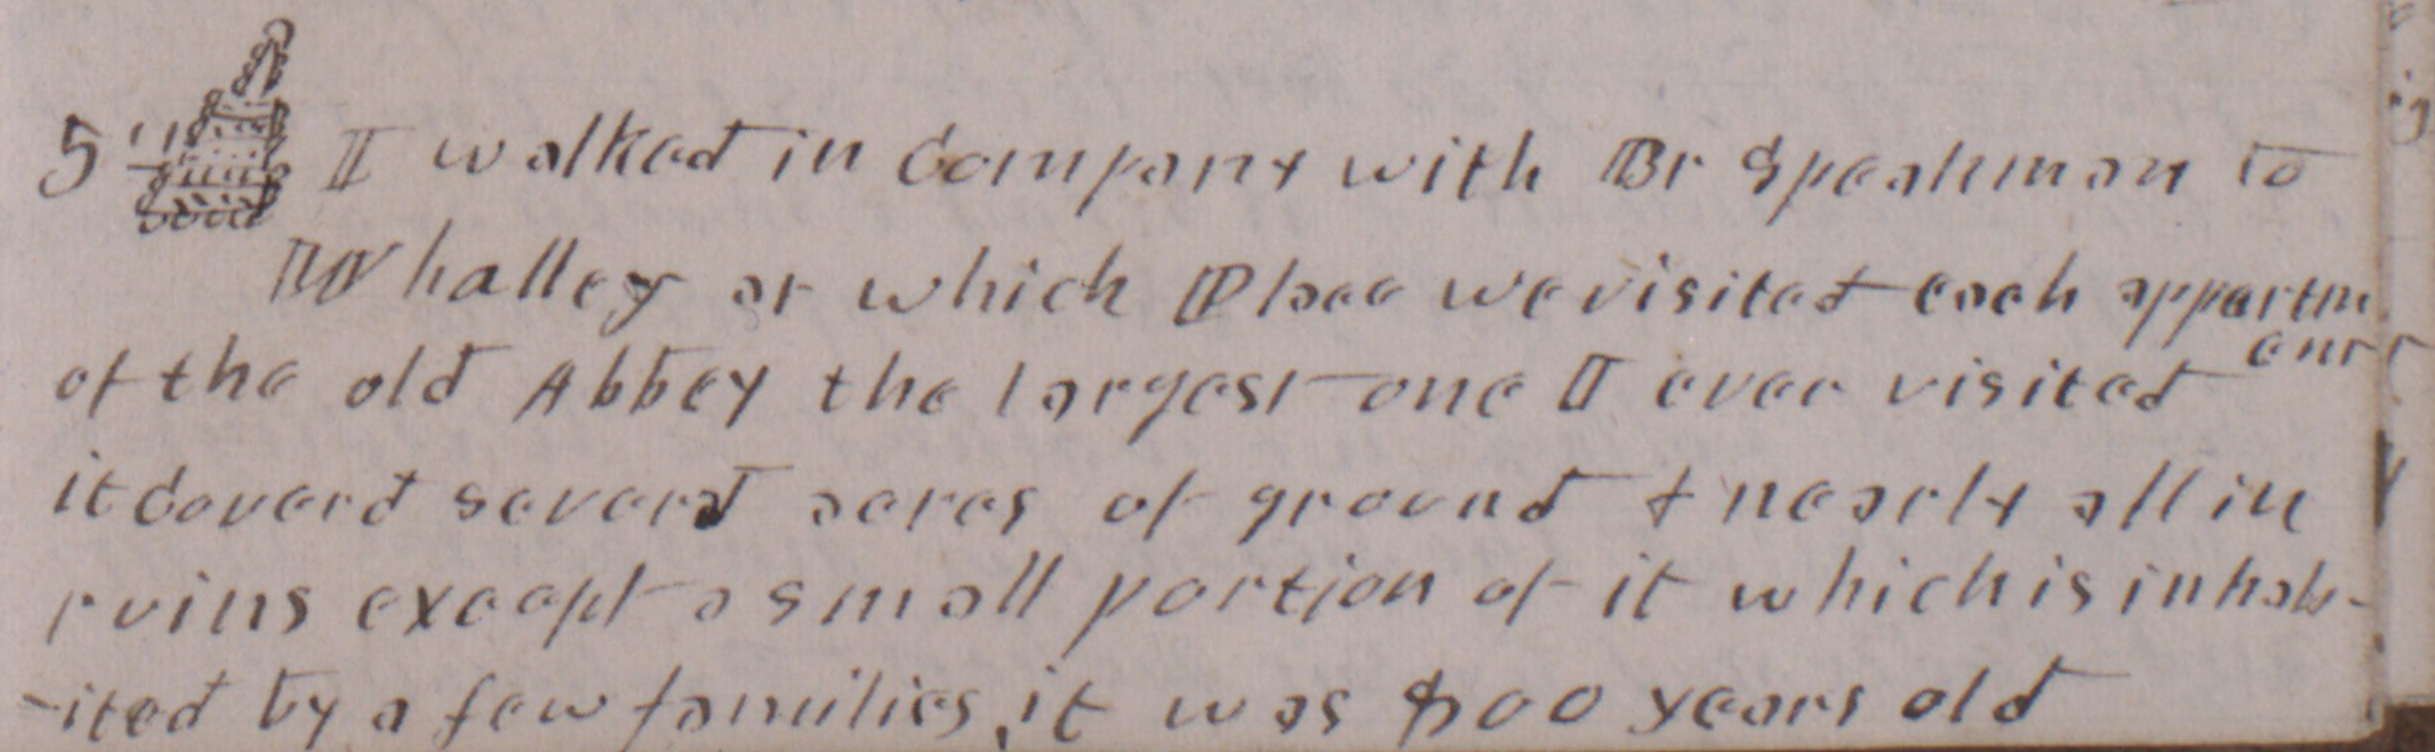 5th I walked in Company with Br Speakman to
Whalley at which Place we visited each appartm
ent
of the old Abbey the largest one I ever visited
it Coverd several acres of ground & nearly all in
ruins except a small portion of it which is inhab-
-ited by a few families, it was 800 years old